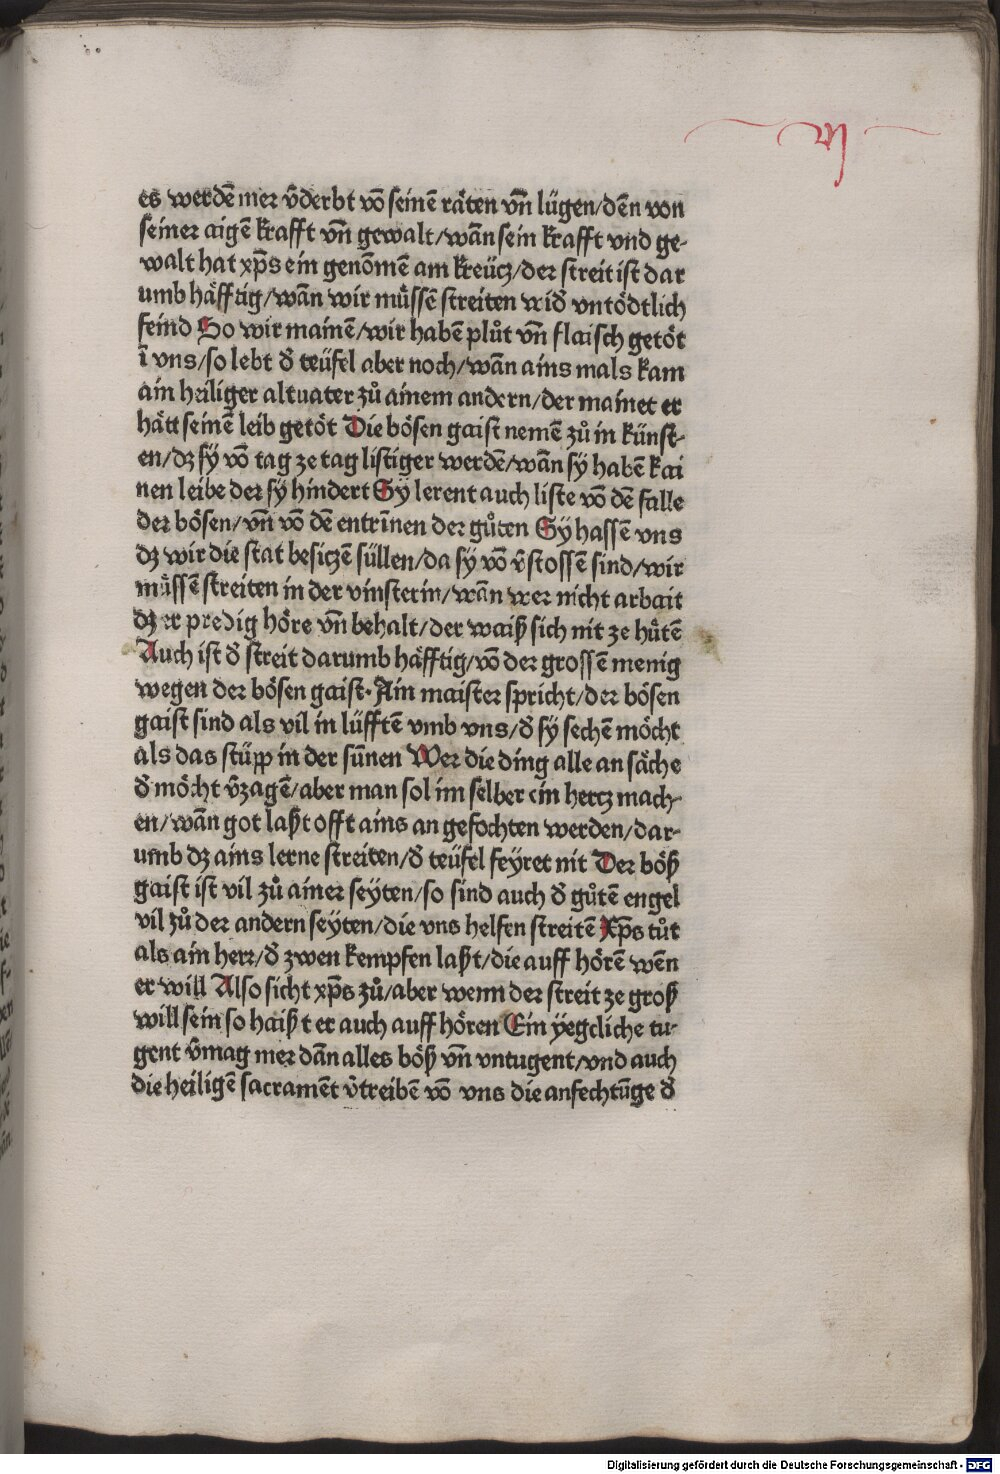 es werdē mer v̄derbt vō seinē räten vn̄ lügen/dēn von
seiner aigē krafft vn̄ gewalt/wān sein krafft vnd ge-
walt hat xp̄s ein genōmē am kreücz/der streit ist dar
umb häfftig/wān wir müssē streiten wid̄ vntödtlich
feind So wir mainē/wir habē plůt vn̄ flaisch getöt
ī vns/so lebt d̄ teüfel aber noch/wān ains mals kam
ain heiliger altuater zů ainem andern/der mainet er
hätt seinē leib getöt Die bösen gaist nemē zů in künst-
en/dz sy vō tag ze tag listiger werdē/wān sy habē kai
nen leibe der sy hindert Sy lerent auch liste vō dē falle
der bösen/vn̄ vō dē entrīnen der gůten Sy hassē vns
dz wir die stat besiczē süllen/da sy vō v̄stossē sind/wir
müssē streiten in der vinsterin/wān wer nicht arbait
dz er predig höre vn̄ behalt/der waiß sich nit ze hůtē
Auch ist d̄ streit darumb häfftig/vō der grossē menig
wegen der bösen gaist. Ain maister spricht/der bösen
gaist sind als vil in lüfftē vmb vns/d̄ sy sechē möcht
als das stüpp in der sūnen Wer die ding alle an säche
d̄ möcht v̄zagē/aber man sol im selber ein hercz mach-
en/wān got laßt offt ains an gefochten werden/dar-
umb dz ains lerne streiten/d̄ teüfel feyret nit Der böß
gaist ist vil zů ainer seyten/so sind auch d̄ gůtē engel
vil zů der andern seyten/die vns helfen streitē Xp̄s tůt
als ain herr/d̄ zwen kempfen laßt/die auff hörē wēn
er will Also sicht xp̄s zů/aber wenn der streit ze groß
will sein so haißt er auch auff hören Ein yegcliche tu-
gent v̄mag mer dān alles böß vn̄ vntugent/vnd auch
die heiligē sacramēt v̄treibē vō vns die anfechtūge d̄
Digitalisierung gefördert durch die Deutsche Forschungsgemeinschaft - DFG